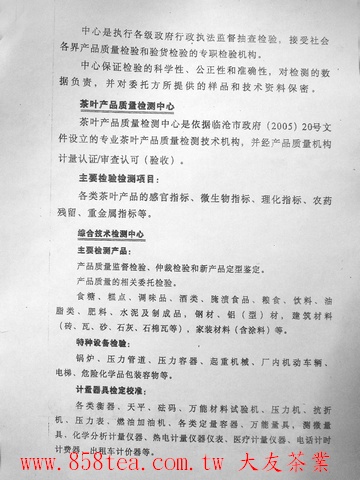 中心是执行各级政府行政执法监督抽查检验，接受社会
各界产品质量检验和验货检验的专职检验机构。
中心保证检验的科学性、公正性和准确性，对检测的数
据负责，并对委托方所提供的样品和技术资料保密。
茶叶产品质量检测中心
茶叶产品质量检测中心是依据临沧市政府（2005）20号文
件设立的专业茶叶产品质量检测技术机构，并经产品质量机构
计量认证/审查认可（验收）。
主要检验检测项目：
各类茶叶产品的感官指标、微生物指标、理化指标、农药
残留、重金属指标等。
综合技术检测中心
主要检测产品：
产品质量监督检验、仲裁检验和新产品定型鉴定。
产品质量的相关委托检验。
食糖、糕点、调味品、酒类、腌渍食品、粮食、饮料、油
脂类、肥料、水泥及制成品，钢材、铝（型）材，建筑材料
（砖、瓦、砂、石灰、石棉瓦等），家装材料（含涂料）等。
特种设备检验：
锅炉、压力管道、压力容器、起重机械、厂内机动车辆、
电梯、危险化学品包装容物等。
计量器具检定校准：
各类衡器、天平、砝码、万能材料试验机、压力机、抗折
机、压力表、燃油加油机、各类定量容器、万能量具、测微量
具、化学分析计量仪器、热电计量仪器仪表、医疗计量仪器、电话计时
计费器、出租车计价器等。
www.858tea.com.tw 大友茶業